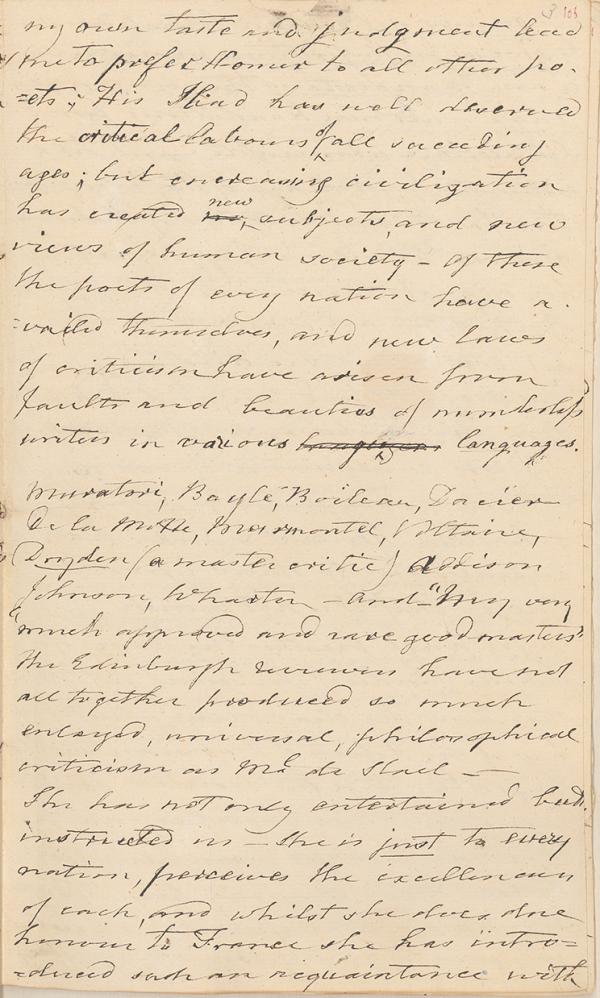 3 103
my own taste and judgment lead
me to prefer Homer to all other po-
=ets; His Iliad has well deserved
the critical labours of all succeeding
ages; but encreasing civilization
has created new subjects, and new
views of human society - Of these
the poets of every nation have a-
=vailed themselves, and new laws
of criticism have arisen from
faults and beauties of numberless
writers in various languages.
Muratori, Bayle, Boileau, Dacier
De la Motte, Marmontel, Voltaire,
Dryden (a master critic) Addison
Johnson, Wharton - and "My very
"much approved and rare good masters"
the Edinburgh reviewers have not
all together produced so much
enlarged, universal, philosophical
criticism as Md. de Stael -
She has not only entertained but
instructed us - She is just to every
nation, perceives the excellencies
of each, and whilst she does due
honour to France she has intro=
=duced such an acquaintance with